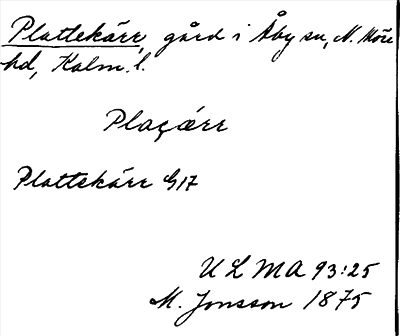 Plattekärr, gård i Åby sn, N. Möre
hd, Kalm. l.
Plaçárr
Plattekärr G17
ULMA 93:25
M. Jonsson 1875